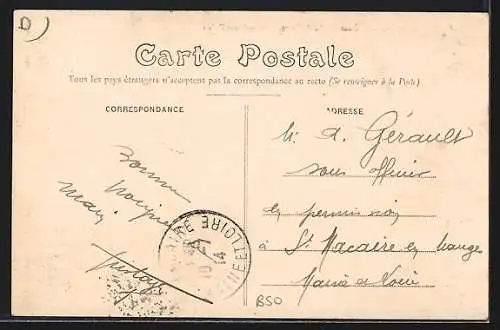 D)
Carte Postale
Tous les pays étrangers n'acceptent pas la correspondance au recto (Se renseigner à la Poste)
CORRESPONDANCE
ADRESSE
M. A. Gérault
sous officier
en permission
à St Macaire en Mauges
Maine et Loire
Bonne
main
ET LOIRE
14
BSO